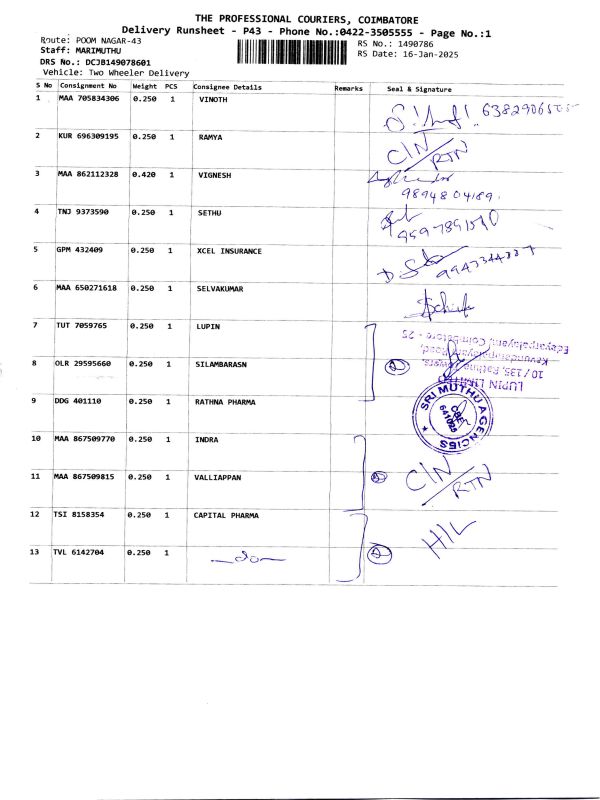 THE PROFESSIONAL COURIERS, COIMBATORE
Delivery Runsheet - P43 - Phone No.:0422-3505555 - Page No.:1
Route: POOM NAGAR-43
RS No.: 1490786
Staff: MARIMUTHU
RS Date: 16-Jan-2025
DRS No.: DCJB149078601
Vehicle: Two Wheeler Delivery
S No Consignment No Weight PCS Consignee Details Remarks Seal & Signature
1 MAA 705834306 0.250 1 VINOTH
2 KUR 696309195 0.250 1 RAMYA C/N/RTN
3 MAA 862112328 0.420 1 VIGNESH 9894804189
4 TNJ 9373590 0.250 1 SETHU
5 GPM 432409 0.250 1 XCEL INSURANCE
6 MAA 650271618 0.250 1 SELVAKUMAR
7 TUT 7059765 0.250 1 LUPIN
LUPIN LIMITED
10 / 135, Rathna Towers,
Kavundampalayam Road,
Edayarpalayam, Coimbatore - 25
8 OLR 29595660 0.250 1 SILAMBARASN
9 DDG 401110 0.250 1 RATHNA PHARMA
SRI MUTHU AGENCIES
CBE
641025
10 MAA 867509770 0.250 1 INDRA
11 MAA 867509815 0.250 1 VALLIAPPAN C/N/RTN
12 TSI 8158354 0.250 1 CAPITAL PHARMA H/L
13 TVL 6142704 0.250 1 —do—